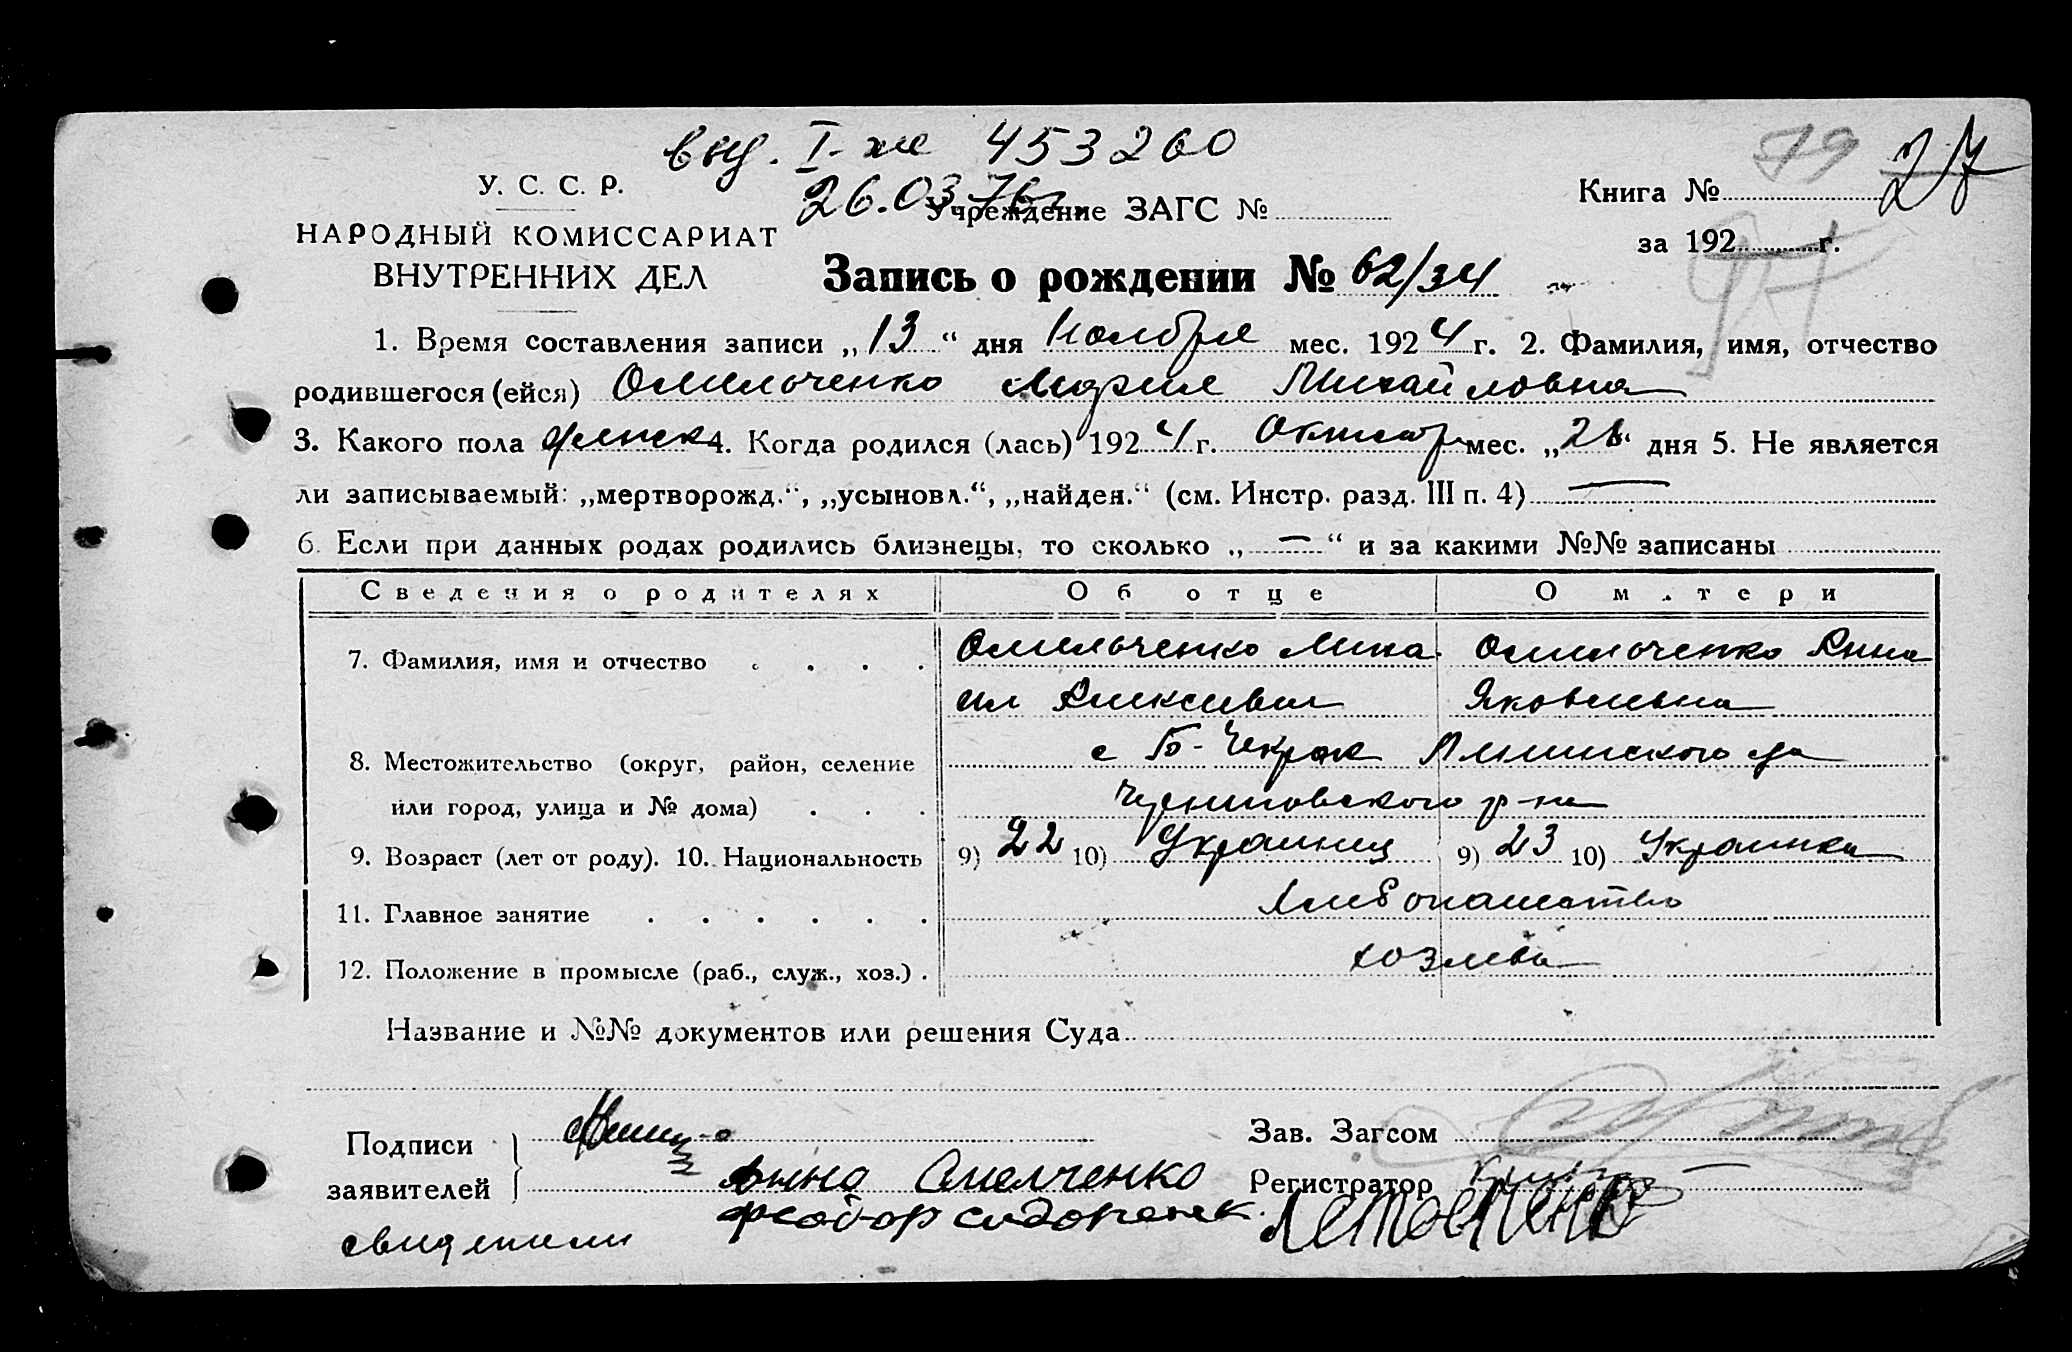 выд. I-же 453260
26.03.76г.
79 27
У. С. С. Р.
НАРОДНЫЙ КОМИССАРИАТ
ВНУТРЕННИХ ДЕЛ
Учреждение ЗАГС №
Книга №
за 192 г.
Запись о рождении № 62/34
1. Время составления записи „13“ дня Ноября мес. 1924 г. 2. Фамилия, имя, отчество
родившегося (ейся) Омельченко Мария Михайловна
3. Какого пола женск 4. Когда родился (лась) 1924 г. Октябр мес. „26“ дня 5. Не является
ли записываемый: „мертворожд.“, „усыновл.“, „найден.“ (см. Инстр. разд. III п. 4) —
6. Если при данных родах родились близнецы, то сколько „—“ и за какими №№ записаны
Сведения о родителях Об отце О матери
7. Фамилия, имя и отчество Омельченко Миха- Омельченко Анна
ил Алексеевич Яковлевна
8. Местожительство (округ, район, селение с Б-Чекрак
или город, улица и № дома) р-на
9. Возраст (лет от роду). 10. Национальность 9) 22 10) Украинец 9) 23 10) Украинка
11. Главное занятие Хлебопашество
12. Положение в промысле (раб., служ., хоз.) хозяева
Название и №№ документов или решения Суда
Подписи
заявителей
Анна Омелченко
свидетели
Зав. Загсом
Регистратор